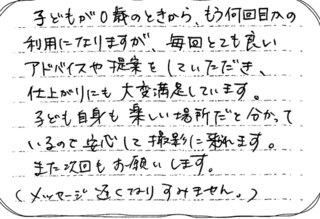 子どもが0歳のときから、もう何回目かの
利用になりますが、毎回とても良い
アドバイスや提案をしていただき、
仕上がりにも大変満足しています。
子ども自身も楽しい場所だと分かって
いるので安心して撮影に来れます。
また次回もお願いします。
(メッセージ遅くなりすみません。)